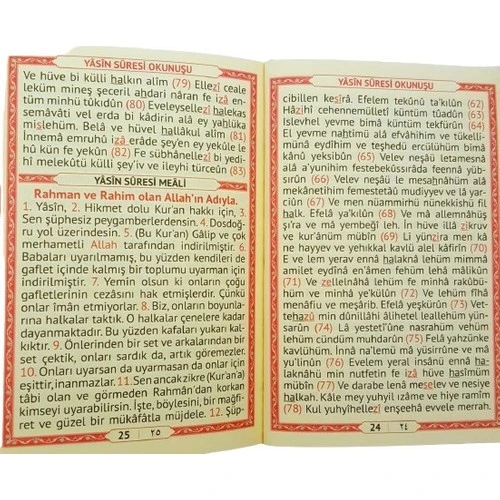 YÂSÎN SÛRESİ OKUNUŞU
cibillen kesîrâ. Efelem tekûnû ta'kılûn (62)
Hâzihî cehennemülletî küntüm tûadûn (63)
Islevhel yevme bimâ küntüm tekfürûn (64)
El yevme nahtimü alâ efvâhihim ve tükelli-
münâ eydîhim ve teşhedü ercülühüm bimâ
kânû yeksibûn (65) Velev neşâü letamesnâ
alâ a'yunihim festebekussırâda feennâ yüb-
sırûn (66) Velev neşâü le mesahnâhüm alâ
mekânetihim femestetâû mudiyyev ve lâ yar-
ciûn (67) Ve men nüammirhü nünekkishü fil
halk. Efelâ ya'kılûn (68) Ve mâ allemnâhüş
şi'ra ve mâ yembeğî leh. İn hüve illâ zikruv
ve kur'ânüm mübîn (69) Li yünzira men kâ
ne hayyev ve yehıkkal kavlü alel kâfirîn (70)
E ve lem yerav ennâ halaknâ lehüm mimmâ
amilet eydînâ en'âmen fehüm lehâ mâlikûn
(71) Ve zellelnâhâ lehüm fe minhâ rakûbü-
hüm ve minhâ ye'külûn (72) Ve lehüm fîhâ
menâfiu ve meşârib. Efelâ yeşkürûn (73) Vet-
tehazû min dûnillâhi âlihetel leallehüm yün-
sarûn (74) Lâ yestetîûne nasrahüm vehüm
lehüm cündüm muhdarûn (75) Felâ yahzünke
kavlühüm. İnnâ na'lemü mâ yüsirrûne ve mâ
yu'linûn (76) Evelem yeral insânü ennâ ha-
laknâhü min nutfetin fe izâ hüve hasîmüm
mübîn (77) Ve darabe lenâ meselev ve nesiye
halkah. Kâle mey yuhyil ızâme ve hiye ramîm
(78) Kul yuhyîhellezî enşeehâ evvele merrah.
24 ٢٤
YÂSÎN SÛRESİ OKUNUŞU
Ve hüve bi külli halkın alîm (79) Ellezî ceale
leküm mineş şeceril ahdari nâran fe izâ en-
tüm minhü tûkıdûn (80) Eveleysellezî halekas
semâvâti vel erda bi kâdirin alâ ey yahlüka
mislehüm. Belâ ve hüvel hallâkul alîm (81)
İnnemâ emruhû izâ erâde şey'en ey yekûle le
hû kün fe yekûn (82) Fe sübhânellezî bi yedi-
hî melekûtü külli şey'iv ve ileyhi türceûn (83)
YÂSÎN SÛRESİ MEÂLİ
Rahman ve Rahim olan Allah'ın Adıyla.
1. Yâsîn, 2. Hikmet dolu Kur'an hakkı için, 3.
Sen şüphesiz peygamberlerdensin. 4. Dosdoğ-
ru yol üzerindesin. 5. (Bu Kur'an) Gâlip ve çok
merhametli Allah tarafından indirilmiştir. 6.
Babaları uyarılmamış, bu yüzden kendileri de
gaflet içinde kalmış bir toplumu uyarman için
indirilmiştir. 7. Yemin olsun ki onların çoğu
gafletlerinin cezasını hak etmişlerdir. Çünkü
onlar îman etmiyorlar. 8. Biz, onların boyunla-
rına halkalar taktık. O halkalar çenelere kadar
dayanmaktadır. Bu yüzden kafaları yukarı kal-
kıktır. 9. Önlerinden bir set ve arkalarından bir
set çektik, onları sardık da, artık göremezler.
10. Onları uyarsan da uyarmasan da onlar için
eşittir, inanmazlar. 11. Sen ancak zikre (Kur'an'a)
tâbi olan ve görmeden Rahmân'dan korkan
kimseyi uyarabilirsin. İşte, böylesini, bir mağfi-
ret ve güzel bir mükâfatla müjdele. 12. Şüp-
25 ٢٥